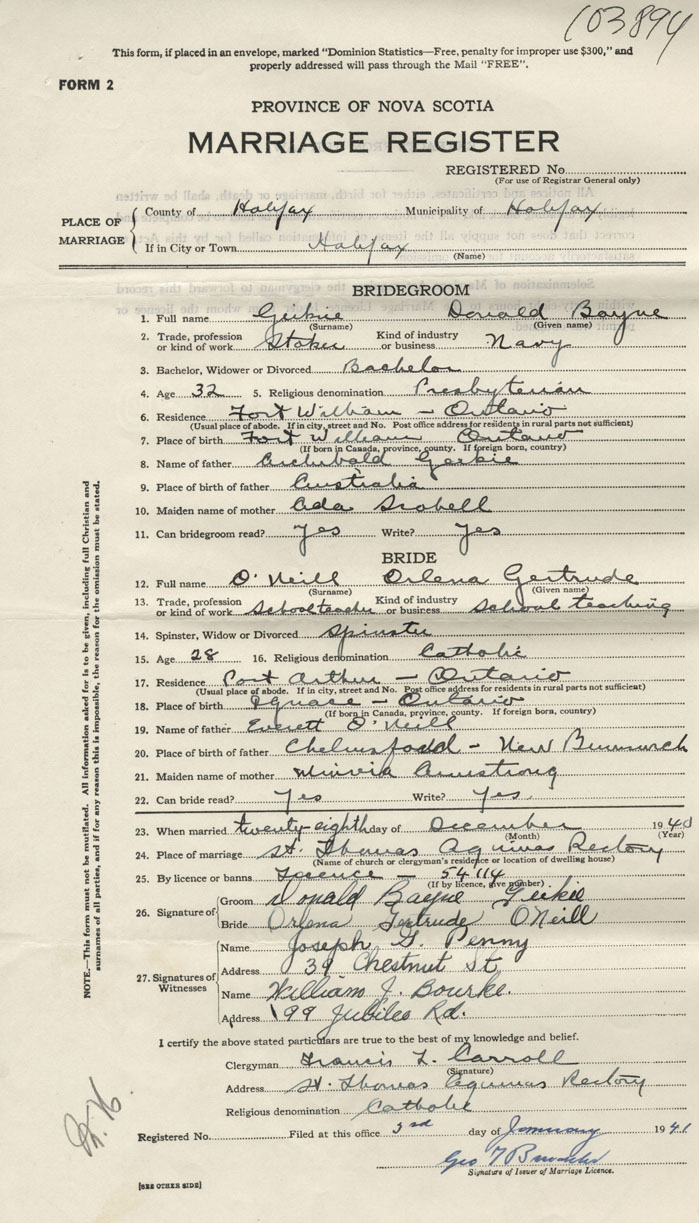 103894
This form, if placed in an envelope, marked "Dominion Statistics—Free, penalty for improper use $300," and
properly addressed will pass through the Mail "FREE".
FORM 2
PROVINCE OF NOVA SCOTIA
MARRIAGE REGISTER
REGISTERED No
(For use of Registrar General only)
PLACE OF MARRIAGE
County of Halifax Municipality of Halifax
If in City or Town Halifax
(Name)
BRIDEGROOM
1. Full name Geikie Donald Bayne
(Surname) (Given name)
2. Trade, profession or kind of work Stoker Kind of industry or business Navy
3. Bachelor, Widower or Divorced Bachelor
4. Age 32 5. Religious denomination Presbyterian
6. Residence Fort William - Ontario
(Usual place of abode. If in city, street and No. Post office address for residents in rural parts not sufficient)
7. Place of birth Fort William Ontario
(If born in Canada, province, county. If foreign born, country)
8. Name of father Archibald Geikie
9. Place of birth of father Australia
10. Maiden name of mother Ada
11. Can bridegroom read? Yes Write? Yes
BRIDE
12. Full name O'Neill Orlena Gertrude
(Surname) (Given name)
13. Trade, profession or kind of work Schoolteacher Kind of industry or business School teaching
14. Spinster, Widow or Divorced Spinster
15. Age 28 16. Religious denomination Catholic
17. Residence Port Arthur - Ontario
(Usual place of abode. If in city, street and No. Post office address for residents in rural parts not sufficient)
18. Place of birth Ignace - Ontario
(If born in Canada, province, county. If foreign born, country)
19. Name of father Everett O'Neill
20. Place of birth of father - New Brunswick
21. Maiden name of mother Armstrong
22. Can bride read? Yes Write? Yes.
23. When married twenty-eighth day of December 1940
(Month) (Year)
24. Place of marriage St. Thomas Aquinas Rectory
(Name of church or clergyman's residence or location of dwelling house)
25. By licence or banns Licence - 54114
(If by licence, give number)
26. Signature of
Groom Donald Bayne Geikie
Bride Orlena Gertrude O'Neill
27. Signatures of Witnesses
Name Joseph G. Penny
Address 39 Chestnut St.
Name William J. Bourke.
Address 199 Jubilee Rd.
I certify the above stated particulars are true to the best of my knowledge and belief.
Clergyman Francis L. Carroll
(Signature)
Address St. Thomas Aquinas Rectory
Religious denomination Catholic
Registered No. Filed at this office 3rd day of January 1941
Geo
Signature of Issuer of Marriage Licence.
[SEE OTHER SIDE]
NOTE.—This form must not be mutilated. All information asked for is to be given, including full Christian and
surnames of all parties, and if for any reason this is impossible, the reason for the omission must be stated.